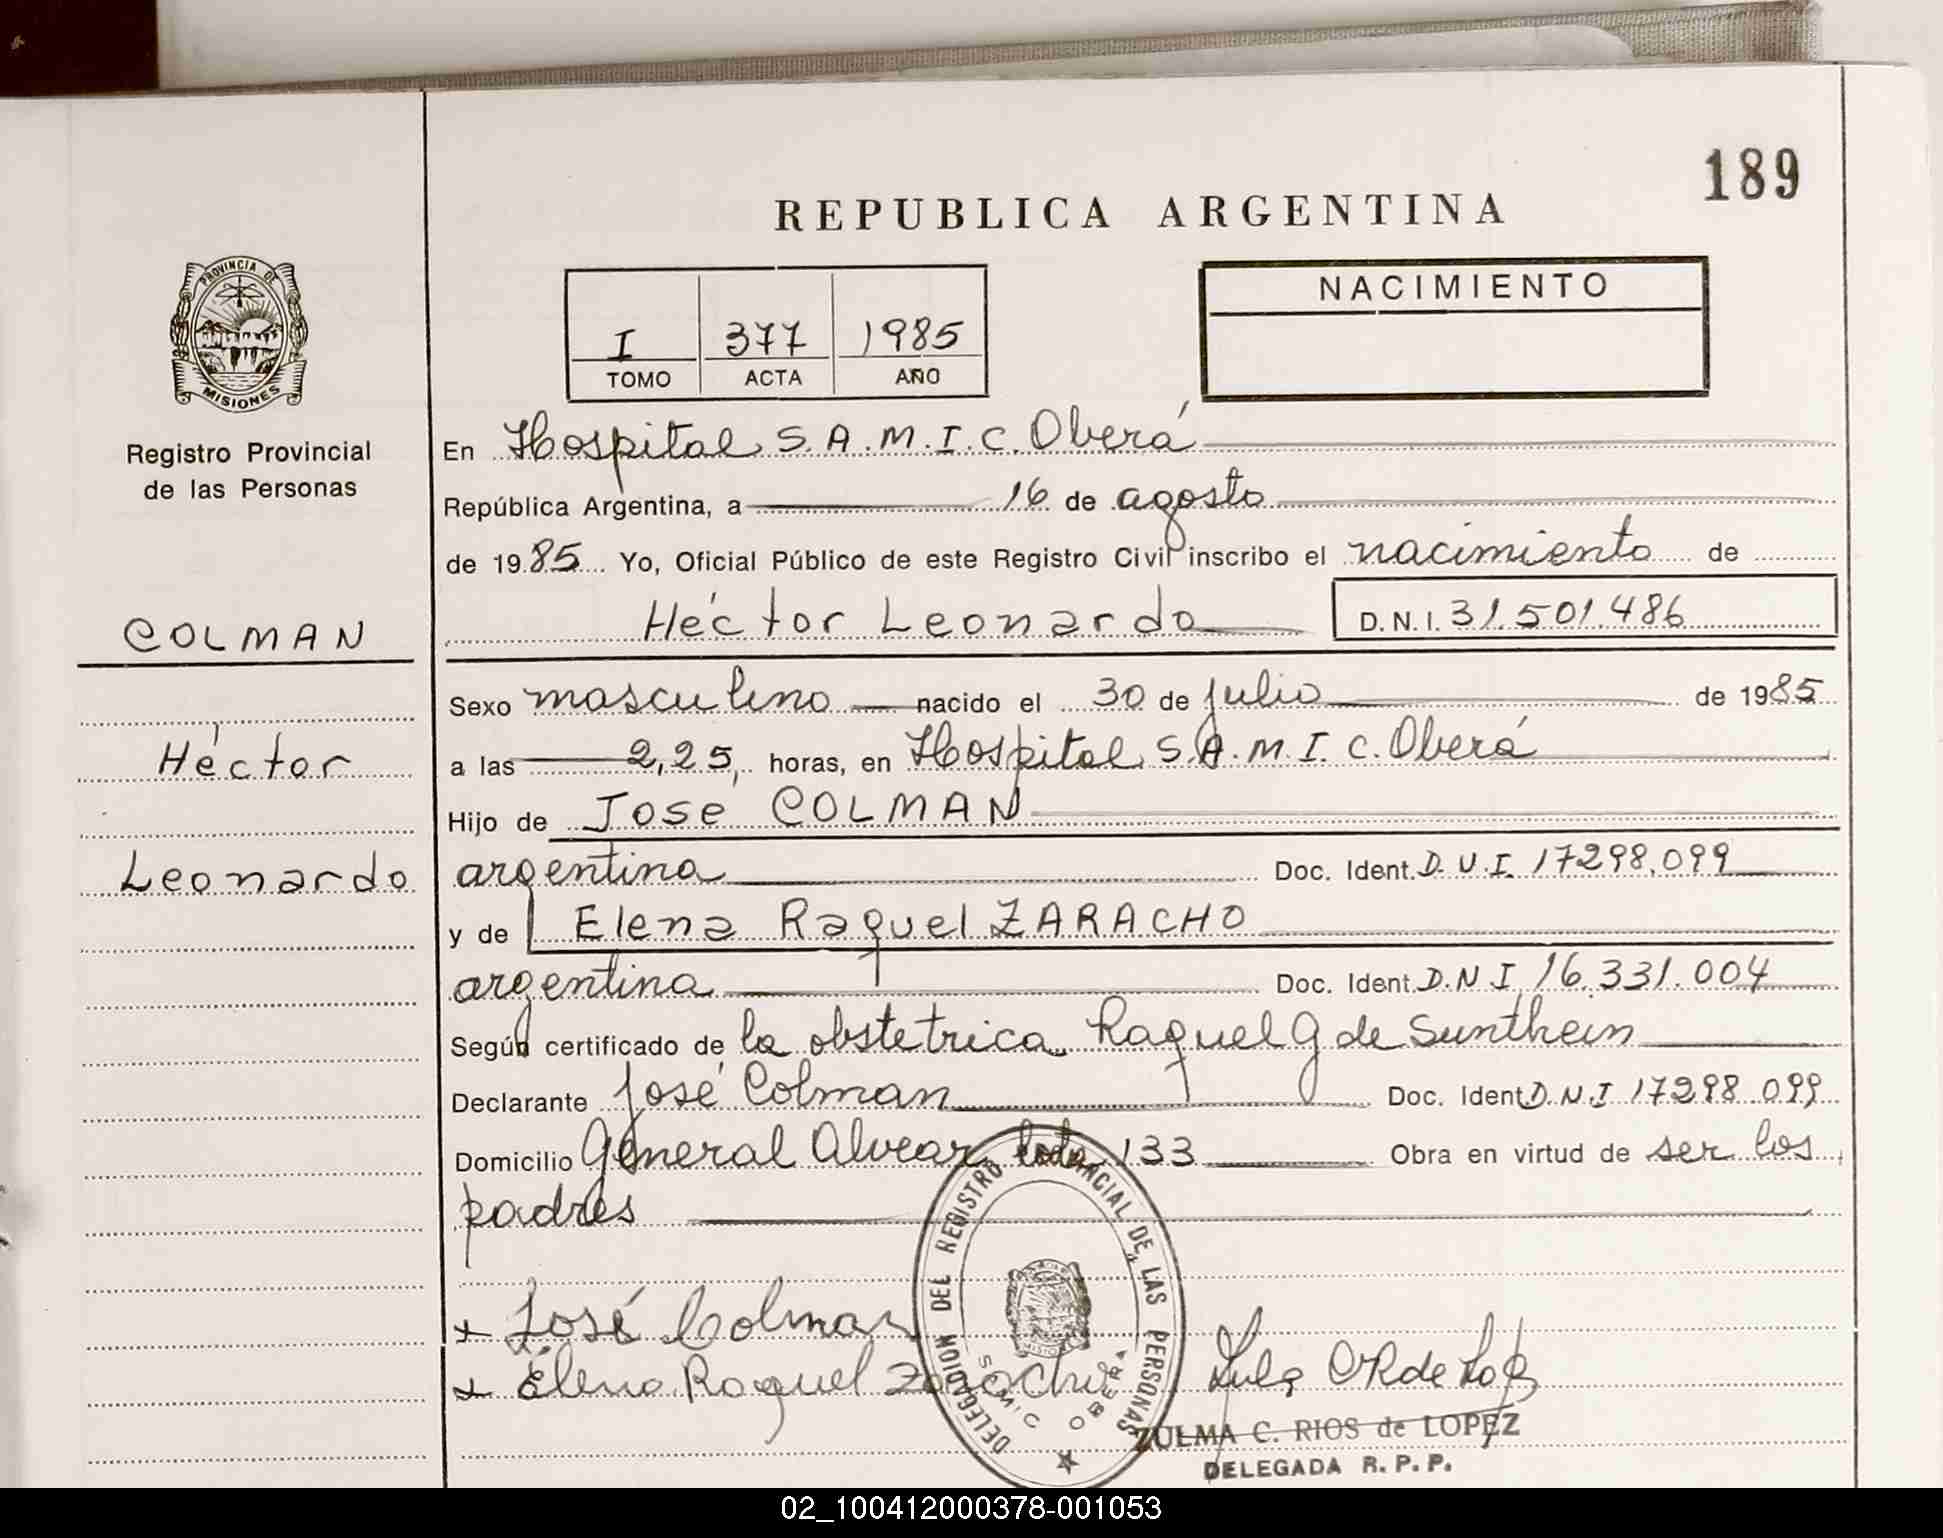 189
REPUBLICA ARGENTINA
PROVINCIA DE
MISIONES
Registro Provincial
de las Personas
COLMAN
Héctor
Leonardo
I 377 1985
TOMO ACTA AÑO
NACIMIENTO
En Hospital S.A.M.I.C. Oberá
República Argentina, a 16 de agosto
de 1985 Yo, Oficial Público de este Registro Civil inscribo el nacimiento de
Héctor Leonardo D.N.I. 31.501.486
Sexo masculino nacido el 30 de julio de 1985
a las 2,25 horas, en Hospital S.A.M.I.C. Oberá
Hijo de José COLMAN
argentina Doc. Ident. D.N.I. 17298.099
y de Elena Raquel ZARACHO
argentina Doc. Ident. D.N.I. 16.331.004
Según certificado de la obstetrica Raquel G de Sunthein
Declarante José Colman Doc. Ident D.N.I 17298.099
Domicilio General Alvear lote 133 Obra en virtud de ser los
padres
DELEGACION DEL REGISTRO PROVINCIAL DE LAS PERSONAS
MISIONES
SAMIC OBERA
José Colman
Elena Raquel Zaracho
ZULMA C. RIOS de LOPEZ
DELEGADA R.P.P.
02_100412000378-001053